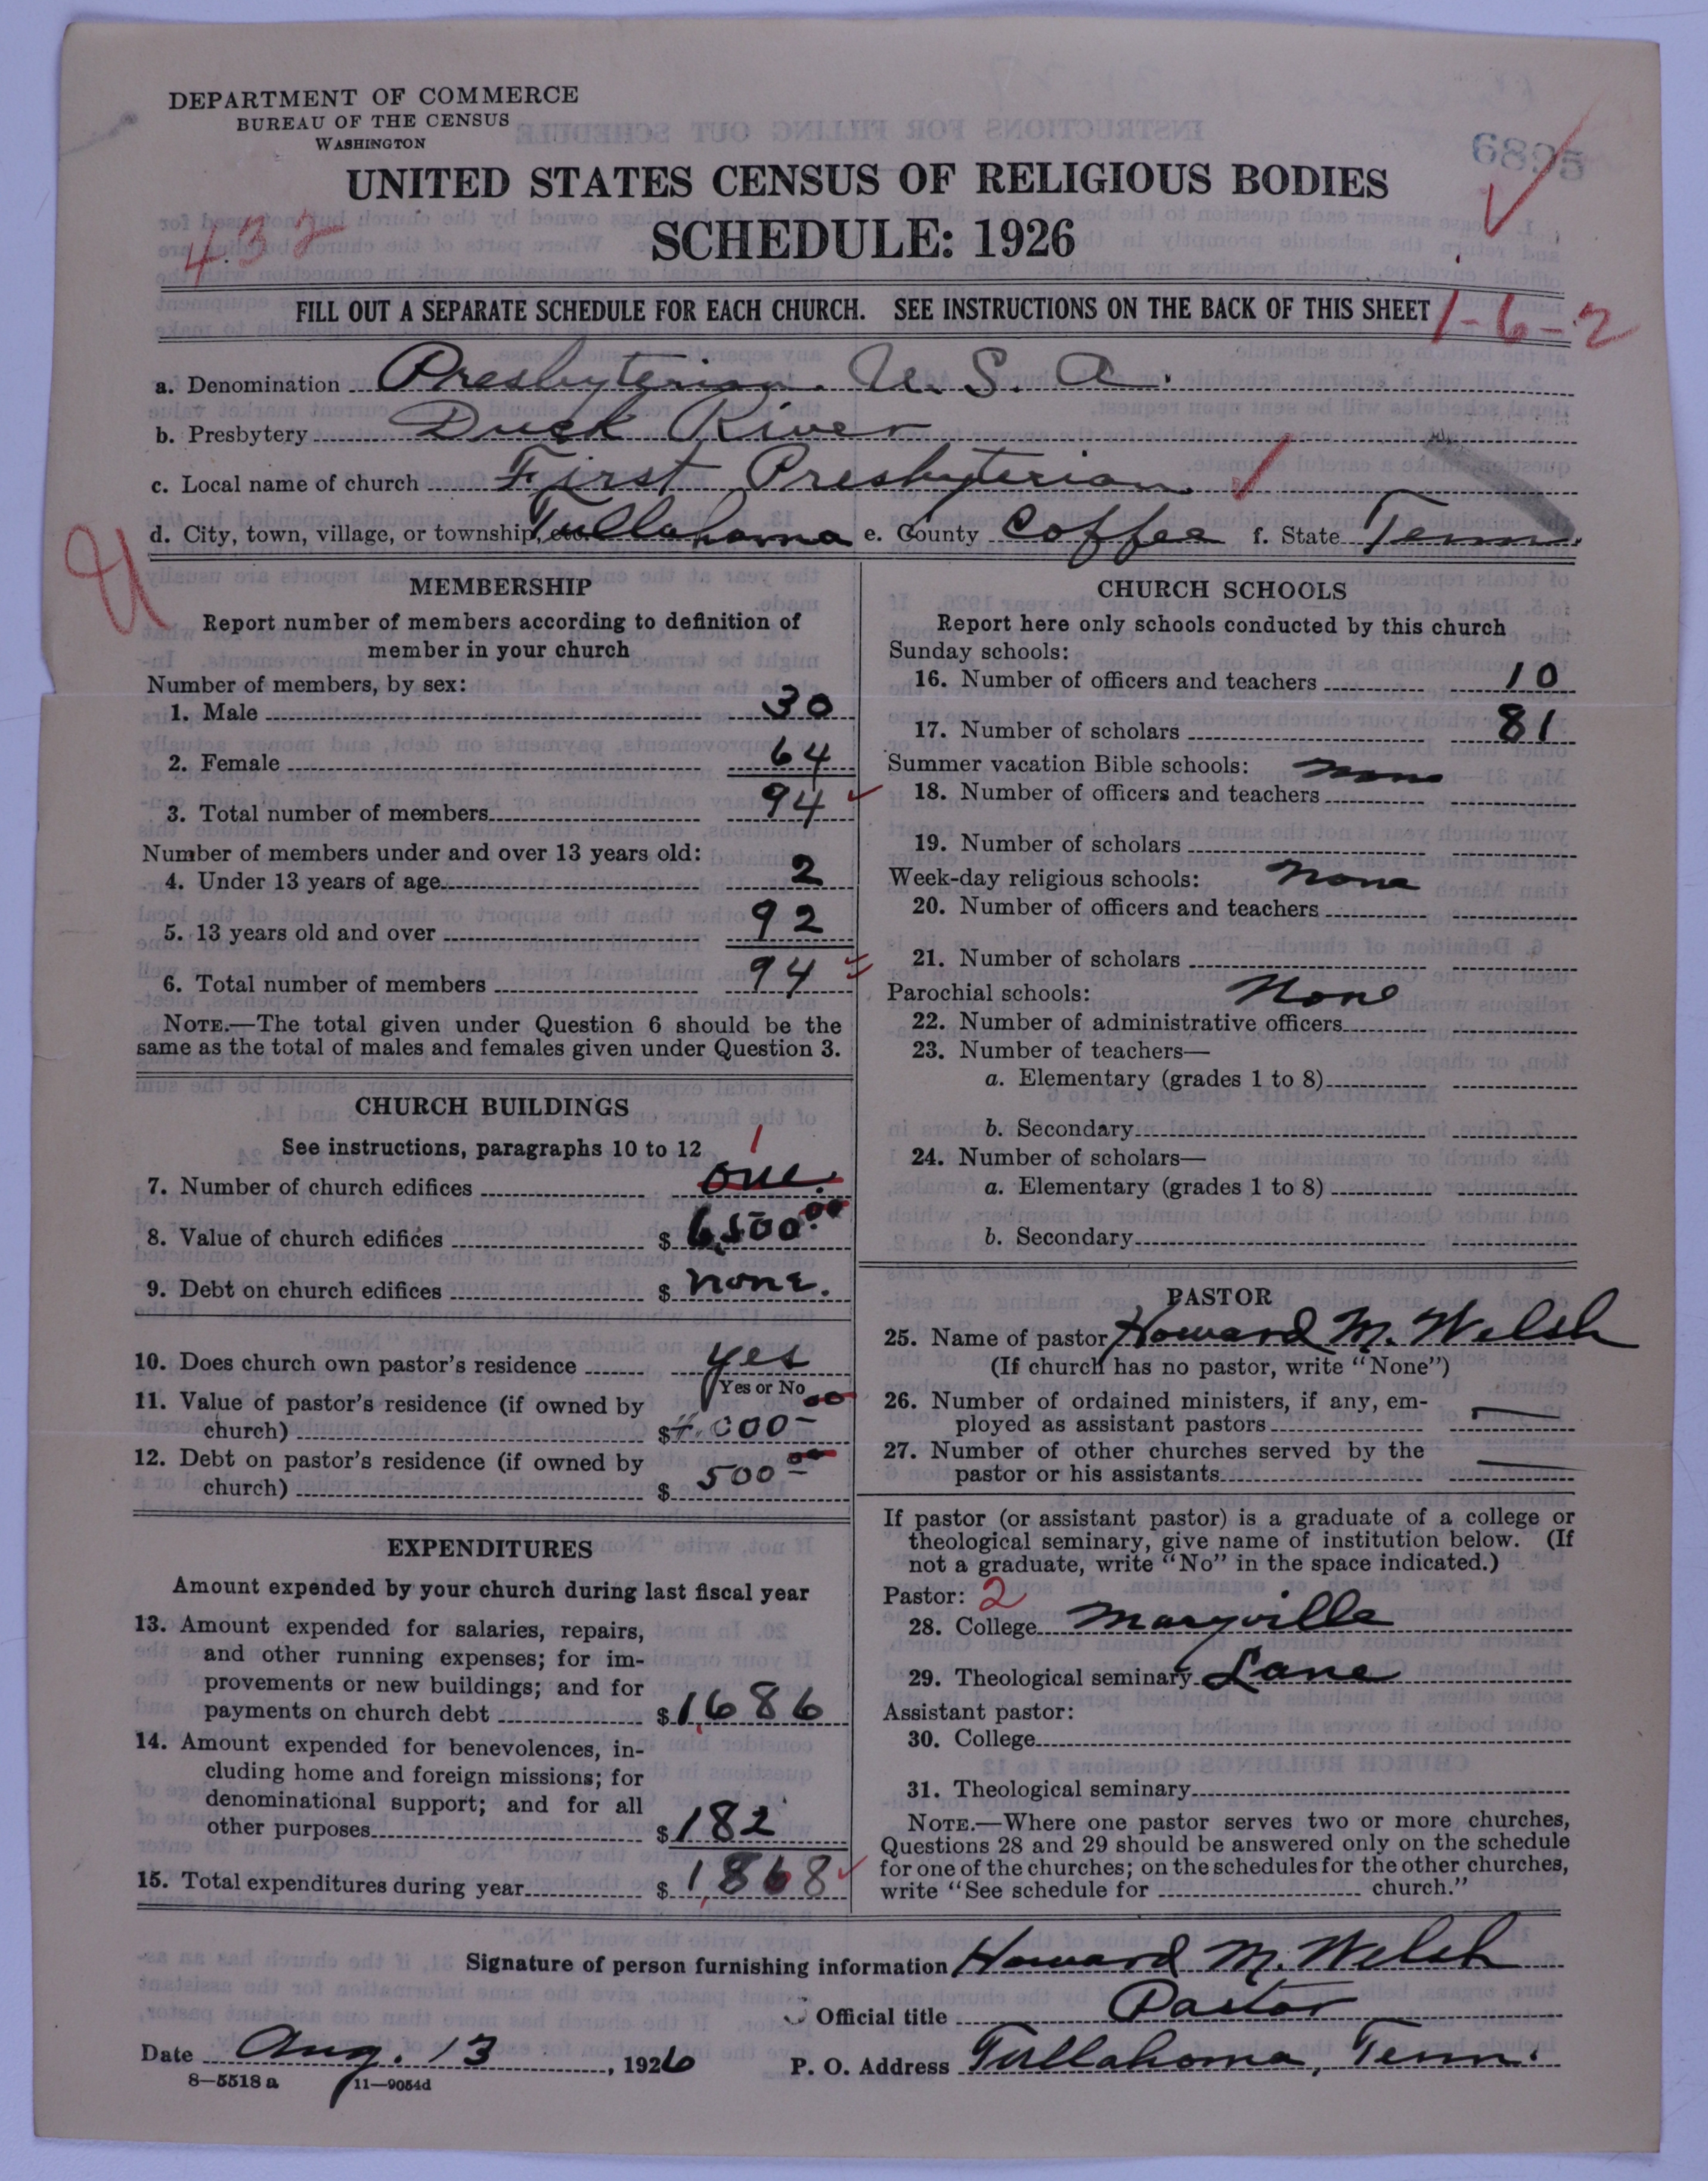 DEPARTMENT OF COMMERCE
BUREAU OF THE CENSUS
WASHINGTON
6825
UNITED STATES CENSUS OF RELIGIOUS BODIES
432
SCHEDULE: 1926
FILL OUT A SEPARATE SCHEDULE FOR EACH CHURCH. SEE INSTRUCTIONS ON THE BACK OF THIS SHEET
1-6-2
a. Denomination Presbyterian. U. S. A.
b. Presbytery Duck River
c. Local name of church First Presbyterian
d. City, town, village, or township, etc. Tullahoma e. County Coffee f. State Tenn.
MEMBERSHIP
Report number of members according to definition of
member in your church
Number of members, by sex:
1. Male 30
2. Female 64
3. Total number of members 94
Number of members under and over 13 years old:
4. Under 13 years of age 2
5. 13 years old and over 92
6. Total number of members 94
NOTE.—The total given under Question 6 should be the
same as the total of males and females given under Question 3.
CHURCH BUILDINGS
See instructions, paragraphs 10 to 12
1
7. Number of church edifices one.
8. Value of church edifices $ 6,500.00
9. Debt on church edifices $ none.
10. Does church own pastor's residence yes
Yes or No
11. Value of pastor's residence (if owned by
church) $ 4,000 00
12. Debt on pastor's residence (if owned by
church) $ 500 00
EXPENDITURES
Amount expended by your church during last fiscal year
13. Amount expended for salaries, repairs,
and other running expenses; for im-
provements or new buildings; and for
payments on church debt $ 1,686
14. Amount expended for benevolences, in-
cluding home and foreign missions; for
denominational support; and for all
other purposes $ 182
15. Total expenditures during year $ 1,868
CHURCH SCHOOLS
Report here only schools conducted by this church
Sunday schools:
16. Number of officers and teachers 10
17. Number of scholars 81
Summer vacation Bible schools: none
18. Number of officers and teachers
19. Number of scholars
Week-day religious schools: none
20. Number of officers and teachers
21. Number of scholars
Parochial schools: None
22. Number of administrative officers
23. Number of teachers—
a. Elementary (grades 1 to 8)
b. Secondary
24. Number of scholars—
a. Elementary (grades 1 to 8)
b. Secondary
PASTOR
25. Name of pastor Howard M. Welsh
(If church has no pastor, write "None")
26. Number of ordained ministers, if any, em-
ployed as assistant pastors —
27. Number of other churches served by the
pastor or his assistants —
If pastor (or assistant pastor) is a graduate of a college or
theological seminary, give name of institution below. (If
not a graduate, write "No" in the space indicated.)
Pastor: 2
28. College Maryville
29. Theological seminary Lane
Assistant pastor:
30. College
31. Theological seminary
NOTE.—Where one pastor serves two or more churches,
Questions 28 and 29 should be answered only on the schedule
for one of the churches; on the schedules for the other churches,
write "See schedule for church."
Signature of person furnishing information Howard M. Welsh
Official title Pastor
Date Aug. 13, 1926 P. O. Address Tullahoma, Tenn.
8—5518 a 11—9054d